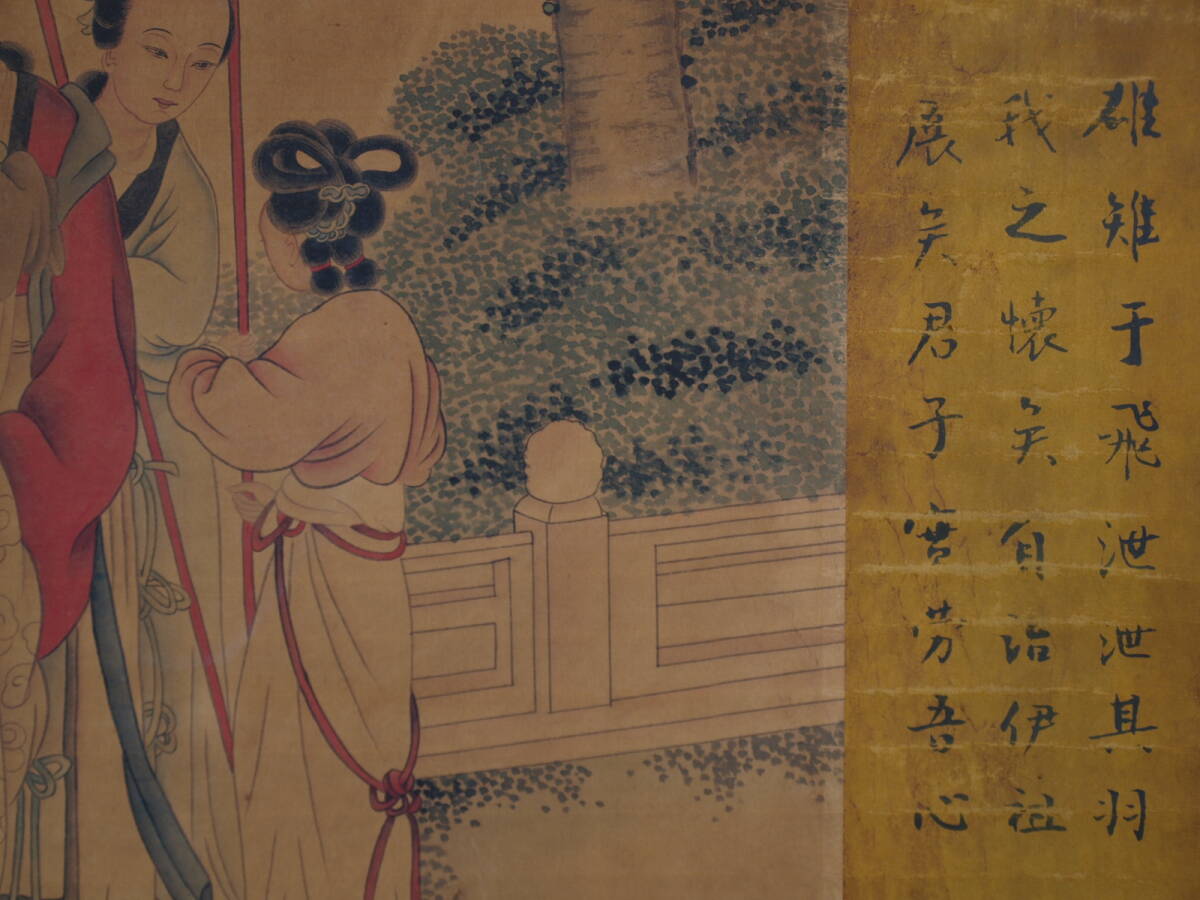 雄雉于飛泄泄其羽
我之懷矣自詒伊祖
展矣君子實劳吾心